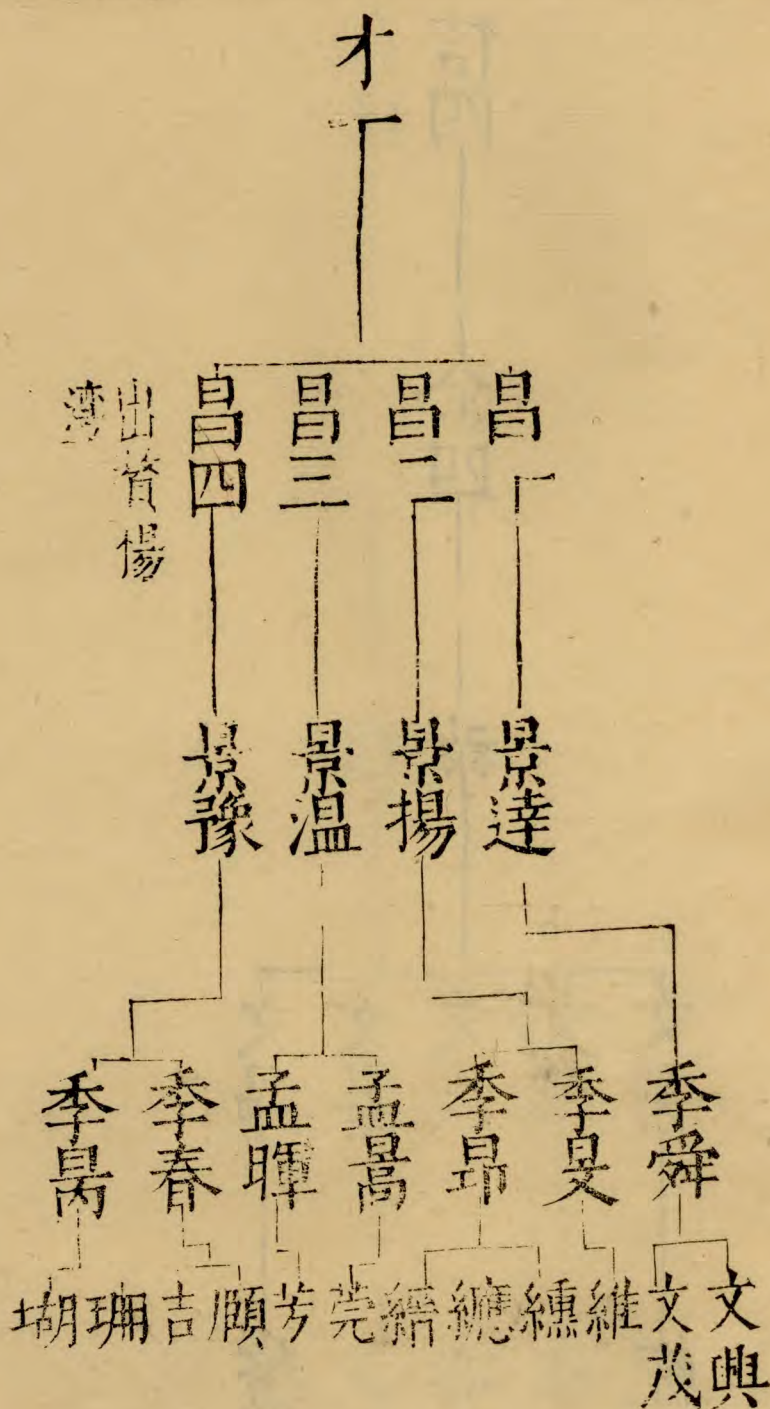 才一
昌一
昌二
昌三
昌四
景達
景揚
景温
景豫
季舜
季旻
季昂
孟暠
孟暉
季春
季昺
文興
文茂
維
纁
纏
縉
莞
芳
頎
吉
珊
瑚